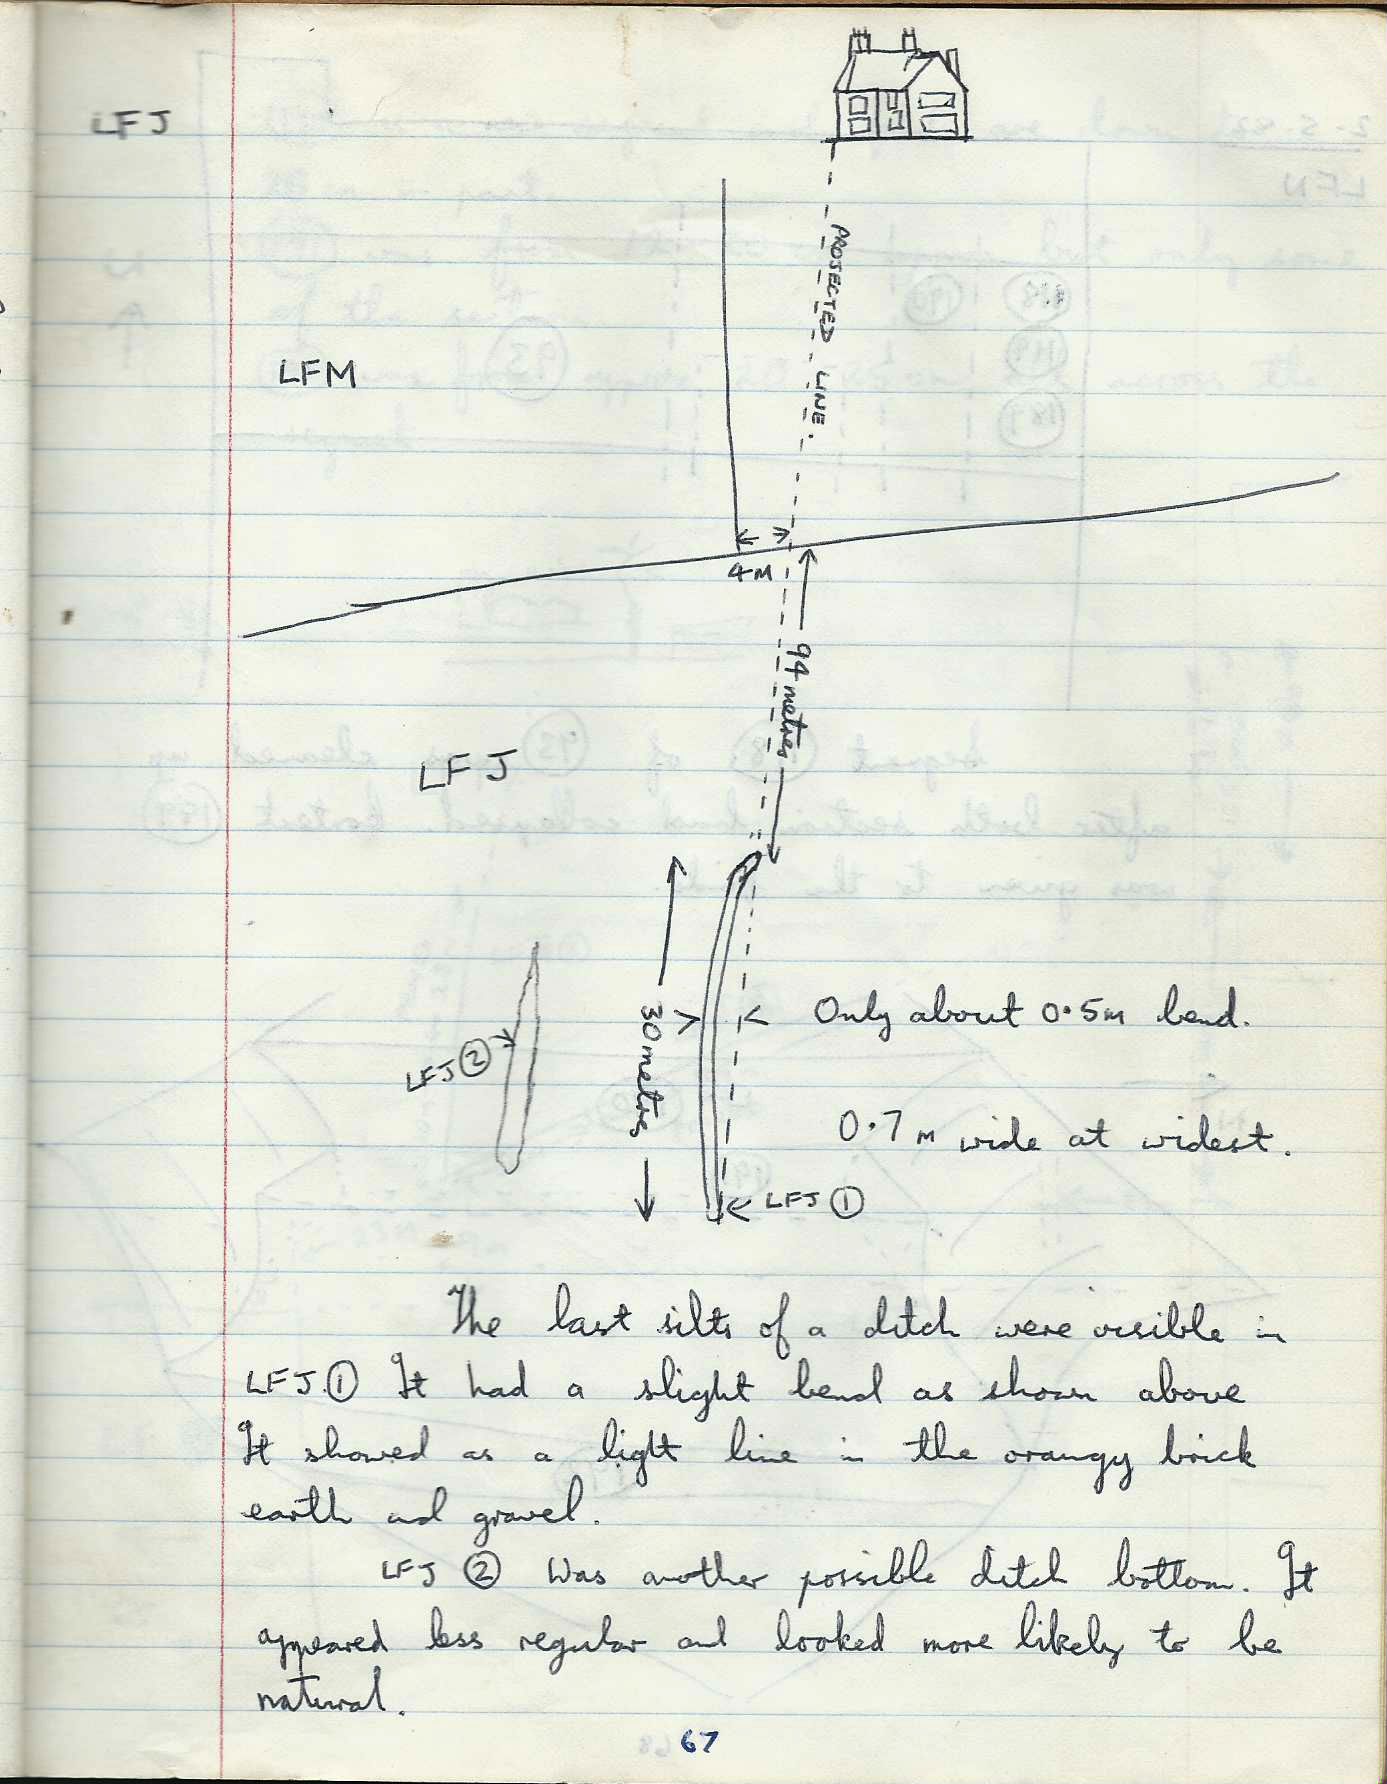 LFJ
PROJECTED LINE.
LFM
4M
94 metres
LFJ
30 metres
Only about 0.5m bend.
LFJ ②
0.7m wide at widest.
LFJ ①
The last silts of a ditch were visible in
LFJ.① It had a slight bend as shown above
It showed as a light line in the orangy brick
earth and gravel.
LFJ ② Was another possible ditch bottom. It
appeared less regular and looked more likely to be
natural.
67